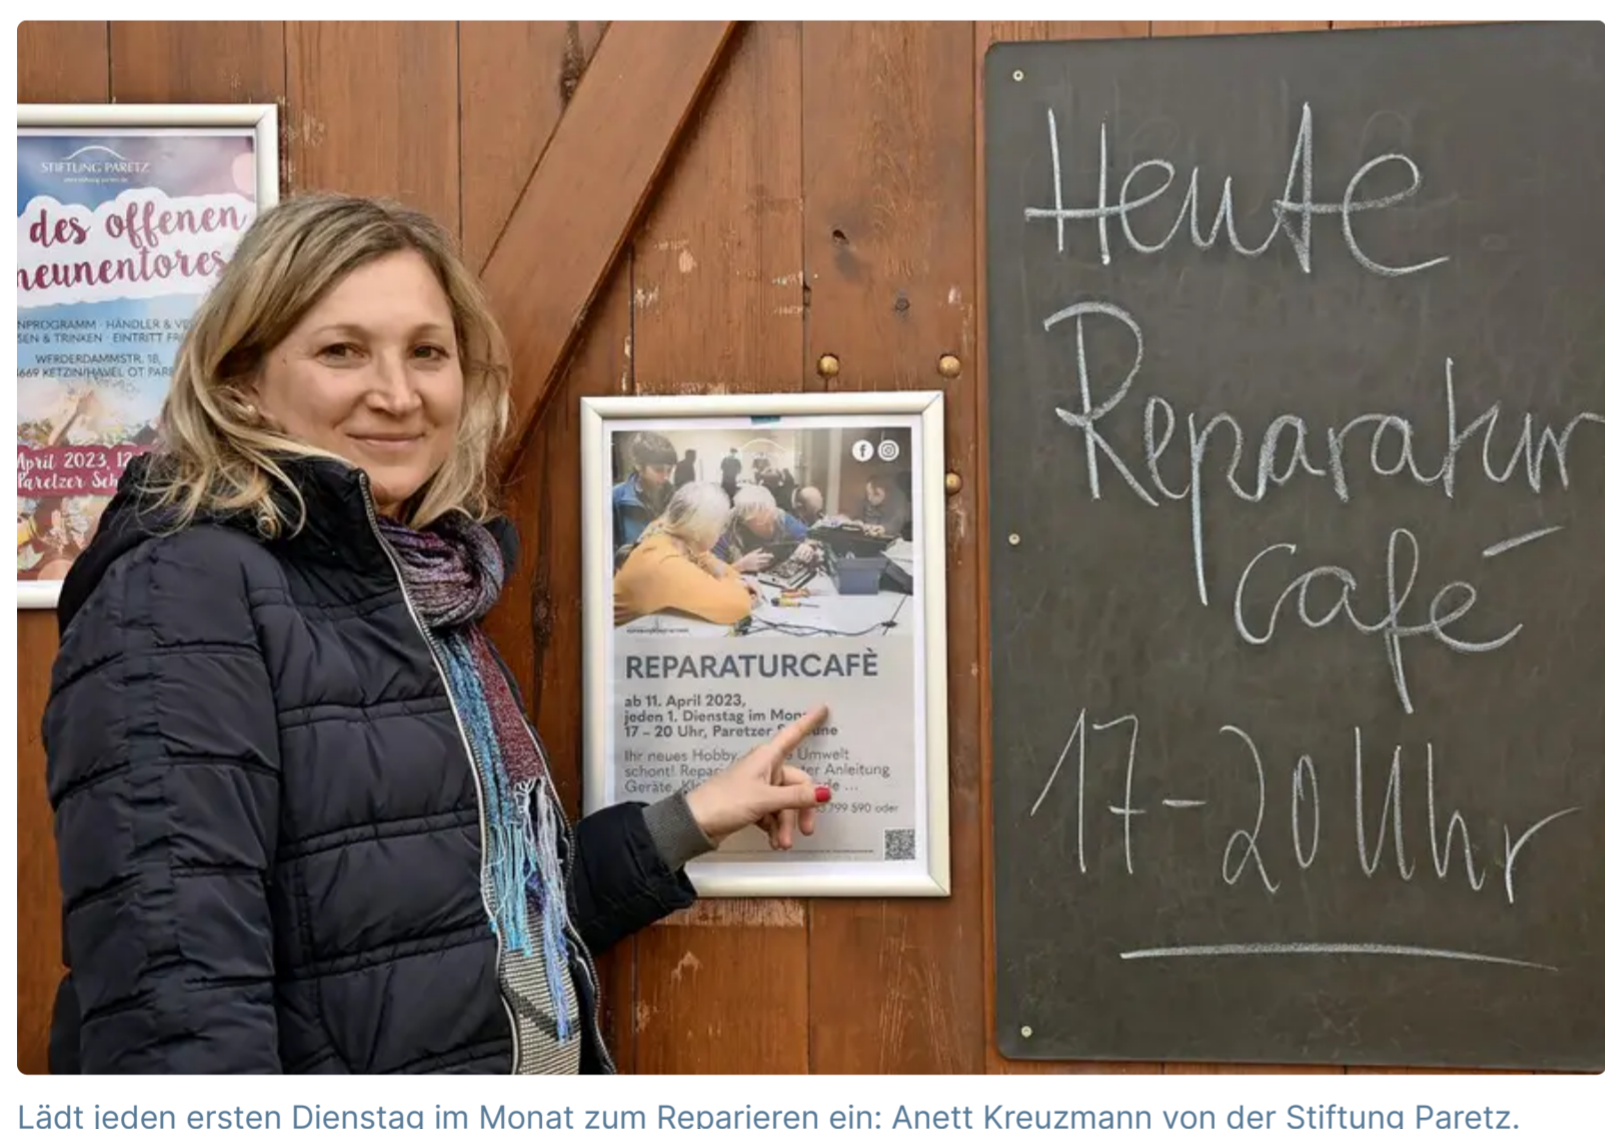 STIFTUNG PARETZ
des offenen
NPROGRAMM · HÄNDLER &
SEN & TRINKEN · EINTRITT
WERDERDAMMSTR. 18,
669 KETZIN/HAVEL OT
April 2023,
Paretzer
REPARATURCAFÈ
ab 11. April 2023,
jeden 1. Dienstag im
17 – 20 Uhr, Paretzer
Ihr neues Hobby, Umwelt
schont! Anleitung
Geräte,
799 590 oder
Heute
Reparatur
café
17-20 Uhr
Lädt jeden ersten Dienstag im Monat zum Reparieren ein: Anett Kreuzmann von der Stiftung Paretz.